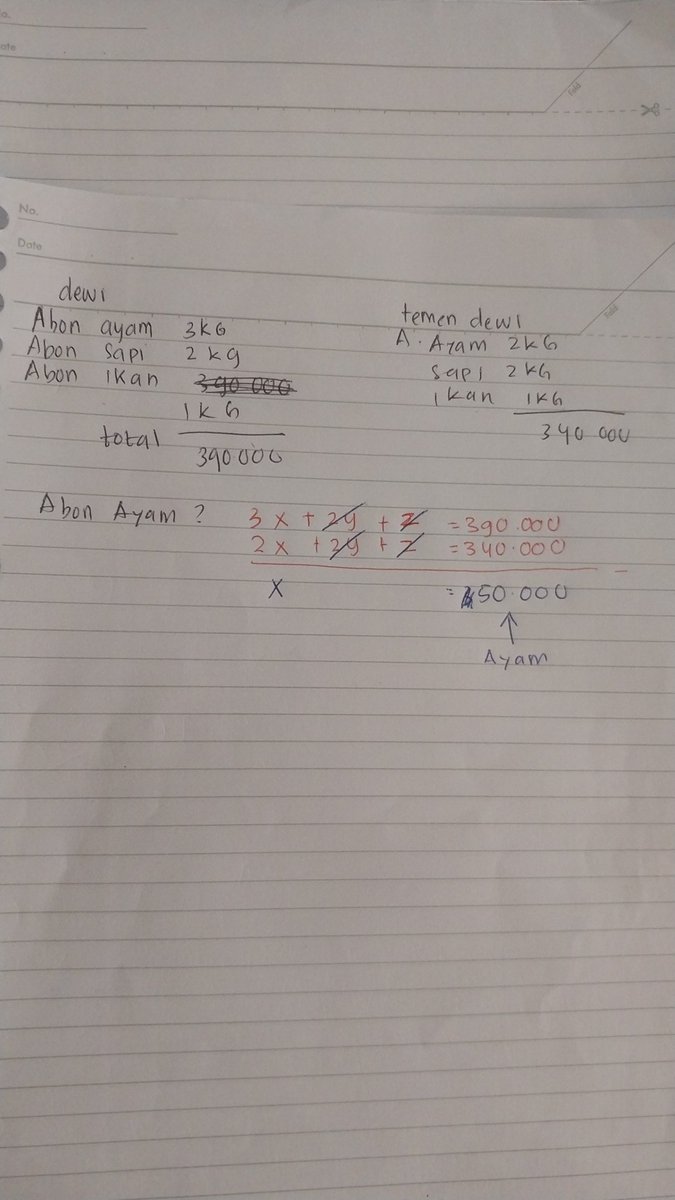 No.
Date
fold
No.
Date
fold
dewi
Abon ayam 3KG
Abon Sapi 2 kg
Abon ikan 390 000
1 KG
total 390000
temen dewi
A. Ayam 2KG
sapi 2KG
ikan 1KG
340 000
Abon Ayam ?
3x + 2y + z = 390.000
2x + 2y + z = 340.000
-
x = 50.000
Ayam